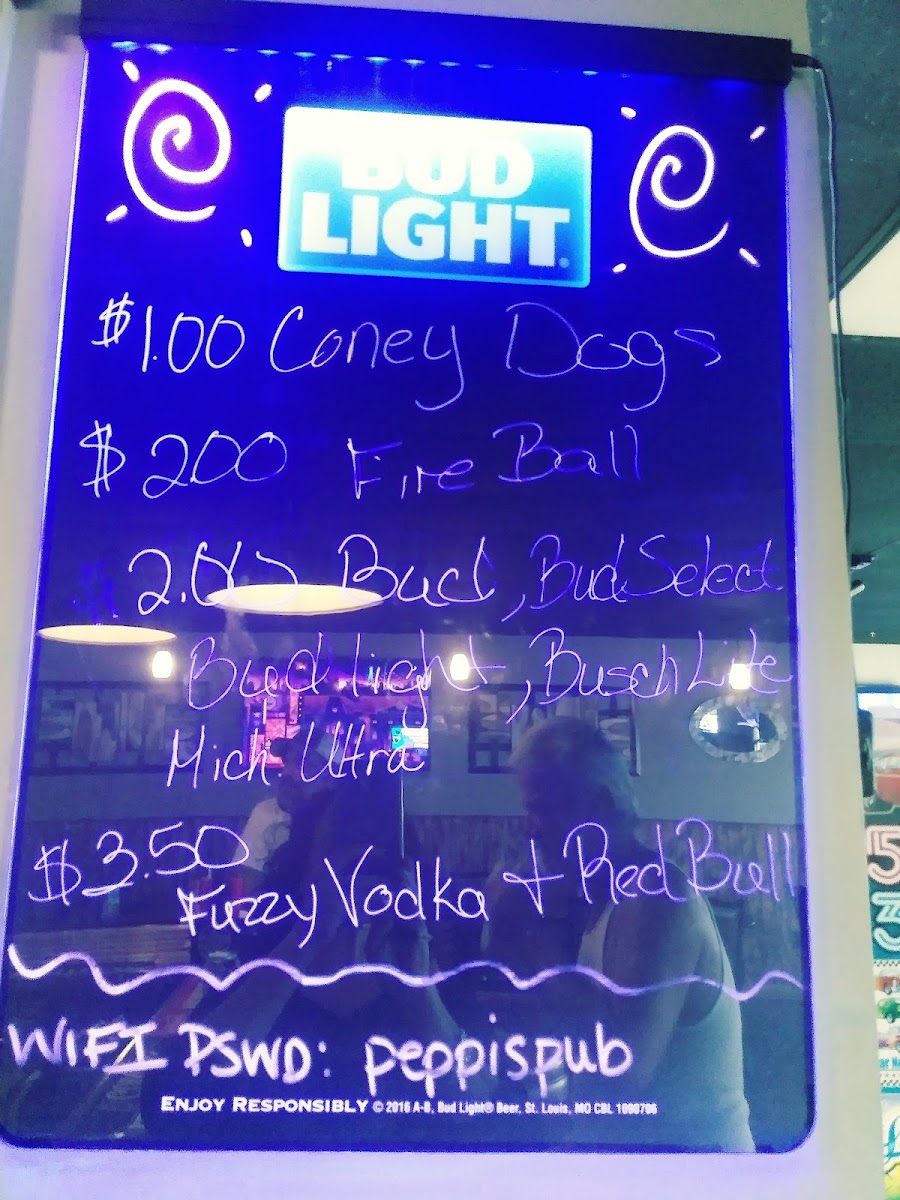 BUD
LIGHT
$1.00 Coney Dogs
$2.00 Fire Ball
2.00 Bud, Bud Select
Bud Light, Busch Lite
Mich. Ultra
$3.50
Fuzzy Vodka + Red Bull
WIFI PSWD: peppispub
ENJOY RESPONSIBLY © 2016 A-B, Bud Light® Beer, St. Louis, MO CBL 1090706
5
3